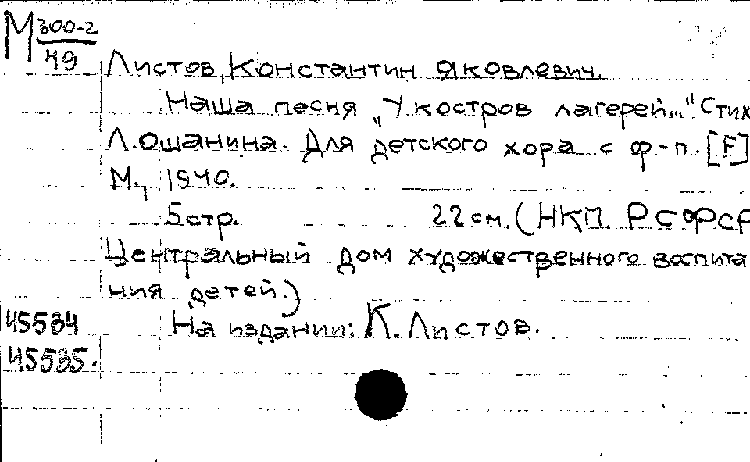 М 300-2
49
Листов, Константин Яковлевич.
Наша песня „У костров лагерей..." Стих
Л. Ошанина. Для детского хора с ф-п. [F]
М., 1940.
5 стр. 22 см. (НКП РСФСР
Центральный дом художественного воспита
ния детей.)
45534 На издании: К. Листов.
45535.